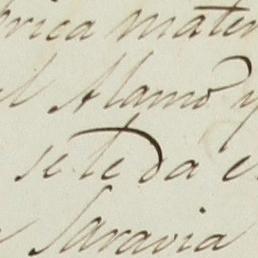 brica mater
el Alamo y
se le da e
Saravia